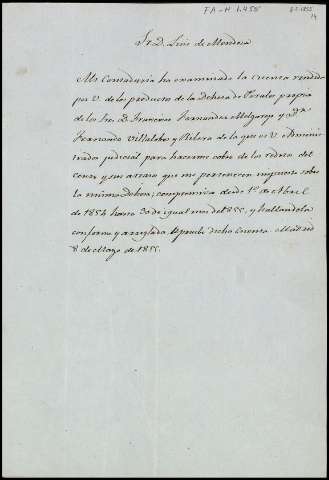 FA-H 1.455
Sr. D. Luis de Mendoza
Mi Contaduría ha examinado la cuenta rendida
por V. de los productos de la Dehesa de propia
de los Sres. D. Francisco Fernandez Melgarejo y Dª
Fernanda Villalobos y Rilera de la que es V. Adminis-
trador judicial para hacerme cobro de los reditos del
censo y sus atrasos que me pertenecen impuesto sobre
la misma Dehesa; comprensiva desde 1º de Abril
de 1854 hasta 30 de igual mes del 1855, y hallandola
conforme y arreglada, Aprueba dicha Cuenta. Madrid
8 de Mayo de 1855.